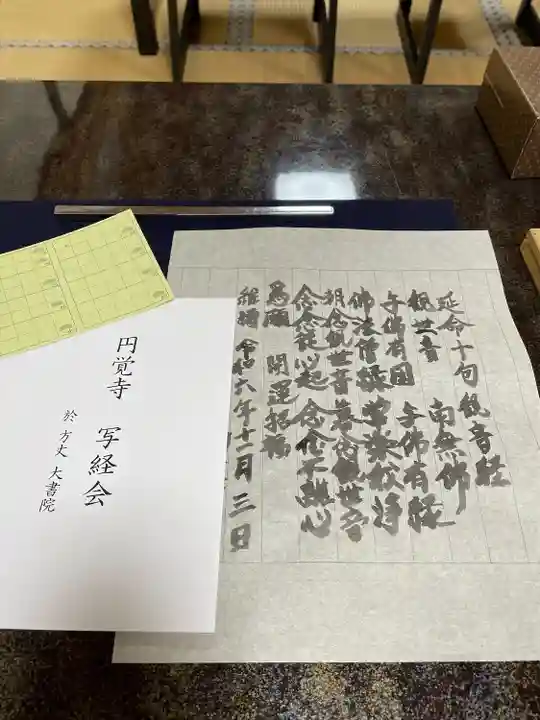 延命十句観音経
観世音 南無佛
与佛有因 与佛有縁
佛法僧縁 常楽我浄
朝念観世音 暮念観世音
念念従心起 念念不離心
為願 開運招福
維時 令和六年十一月三日
円覚寺 写経会
於 方丈 大書院